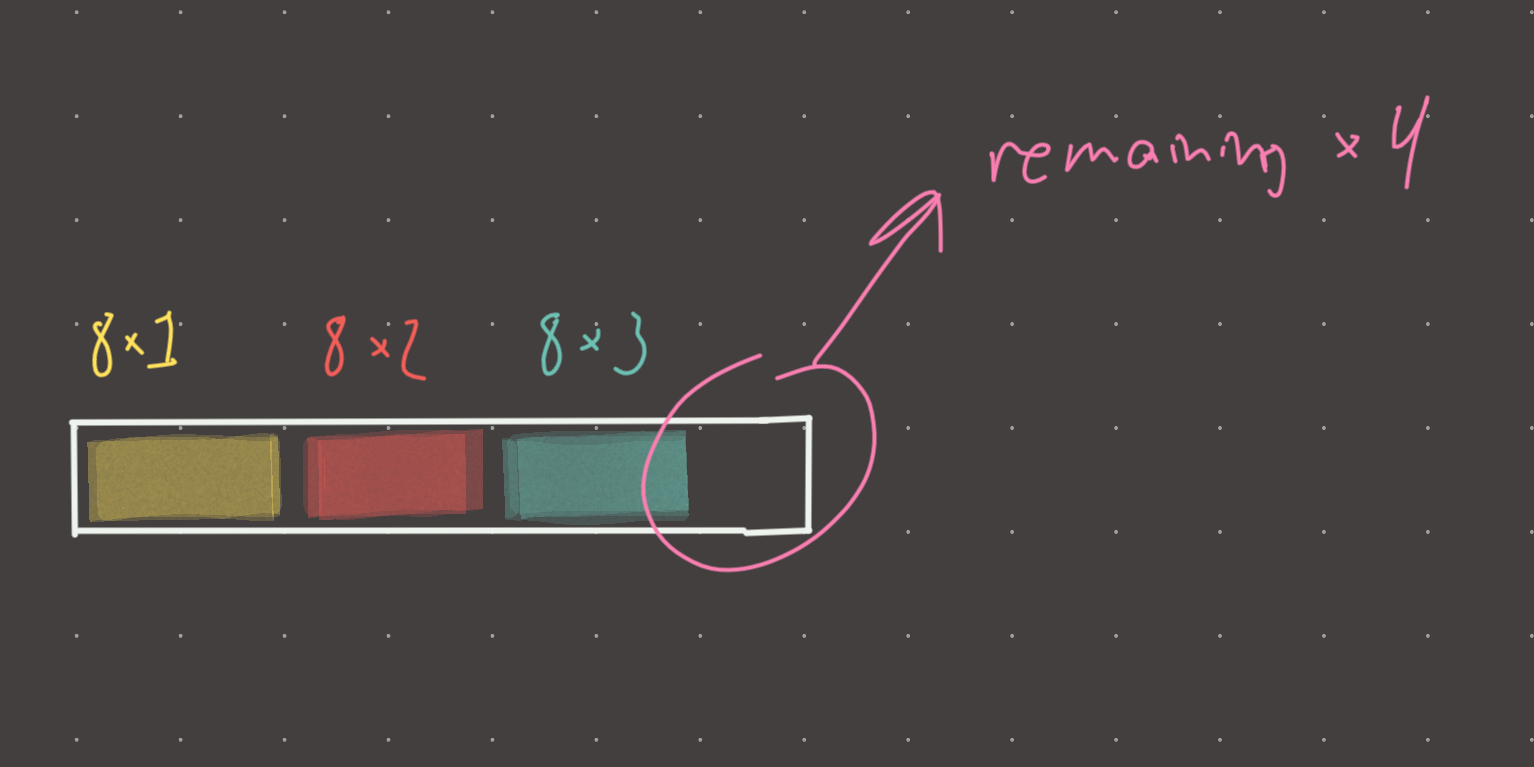 remaining × 4
8 × 1 8 × 2 8 × 3